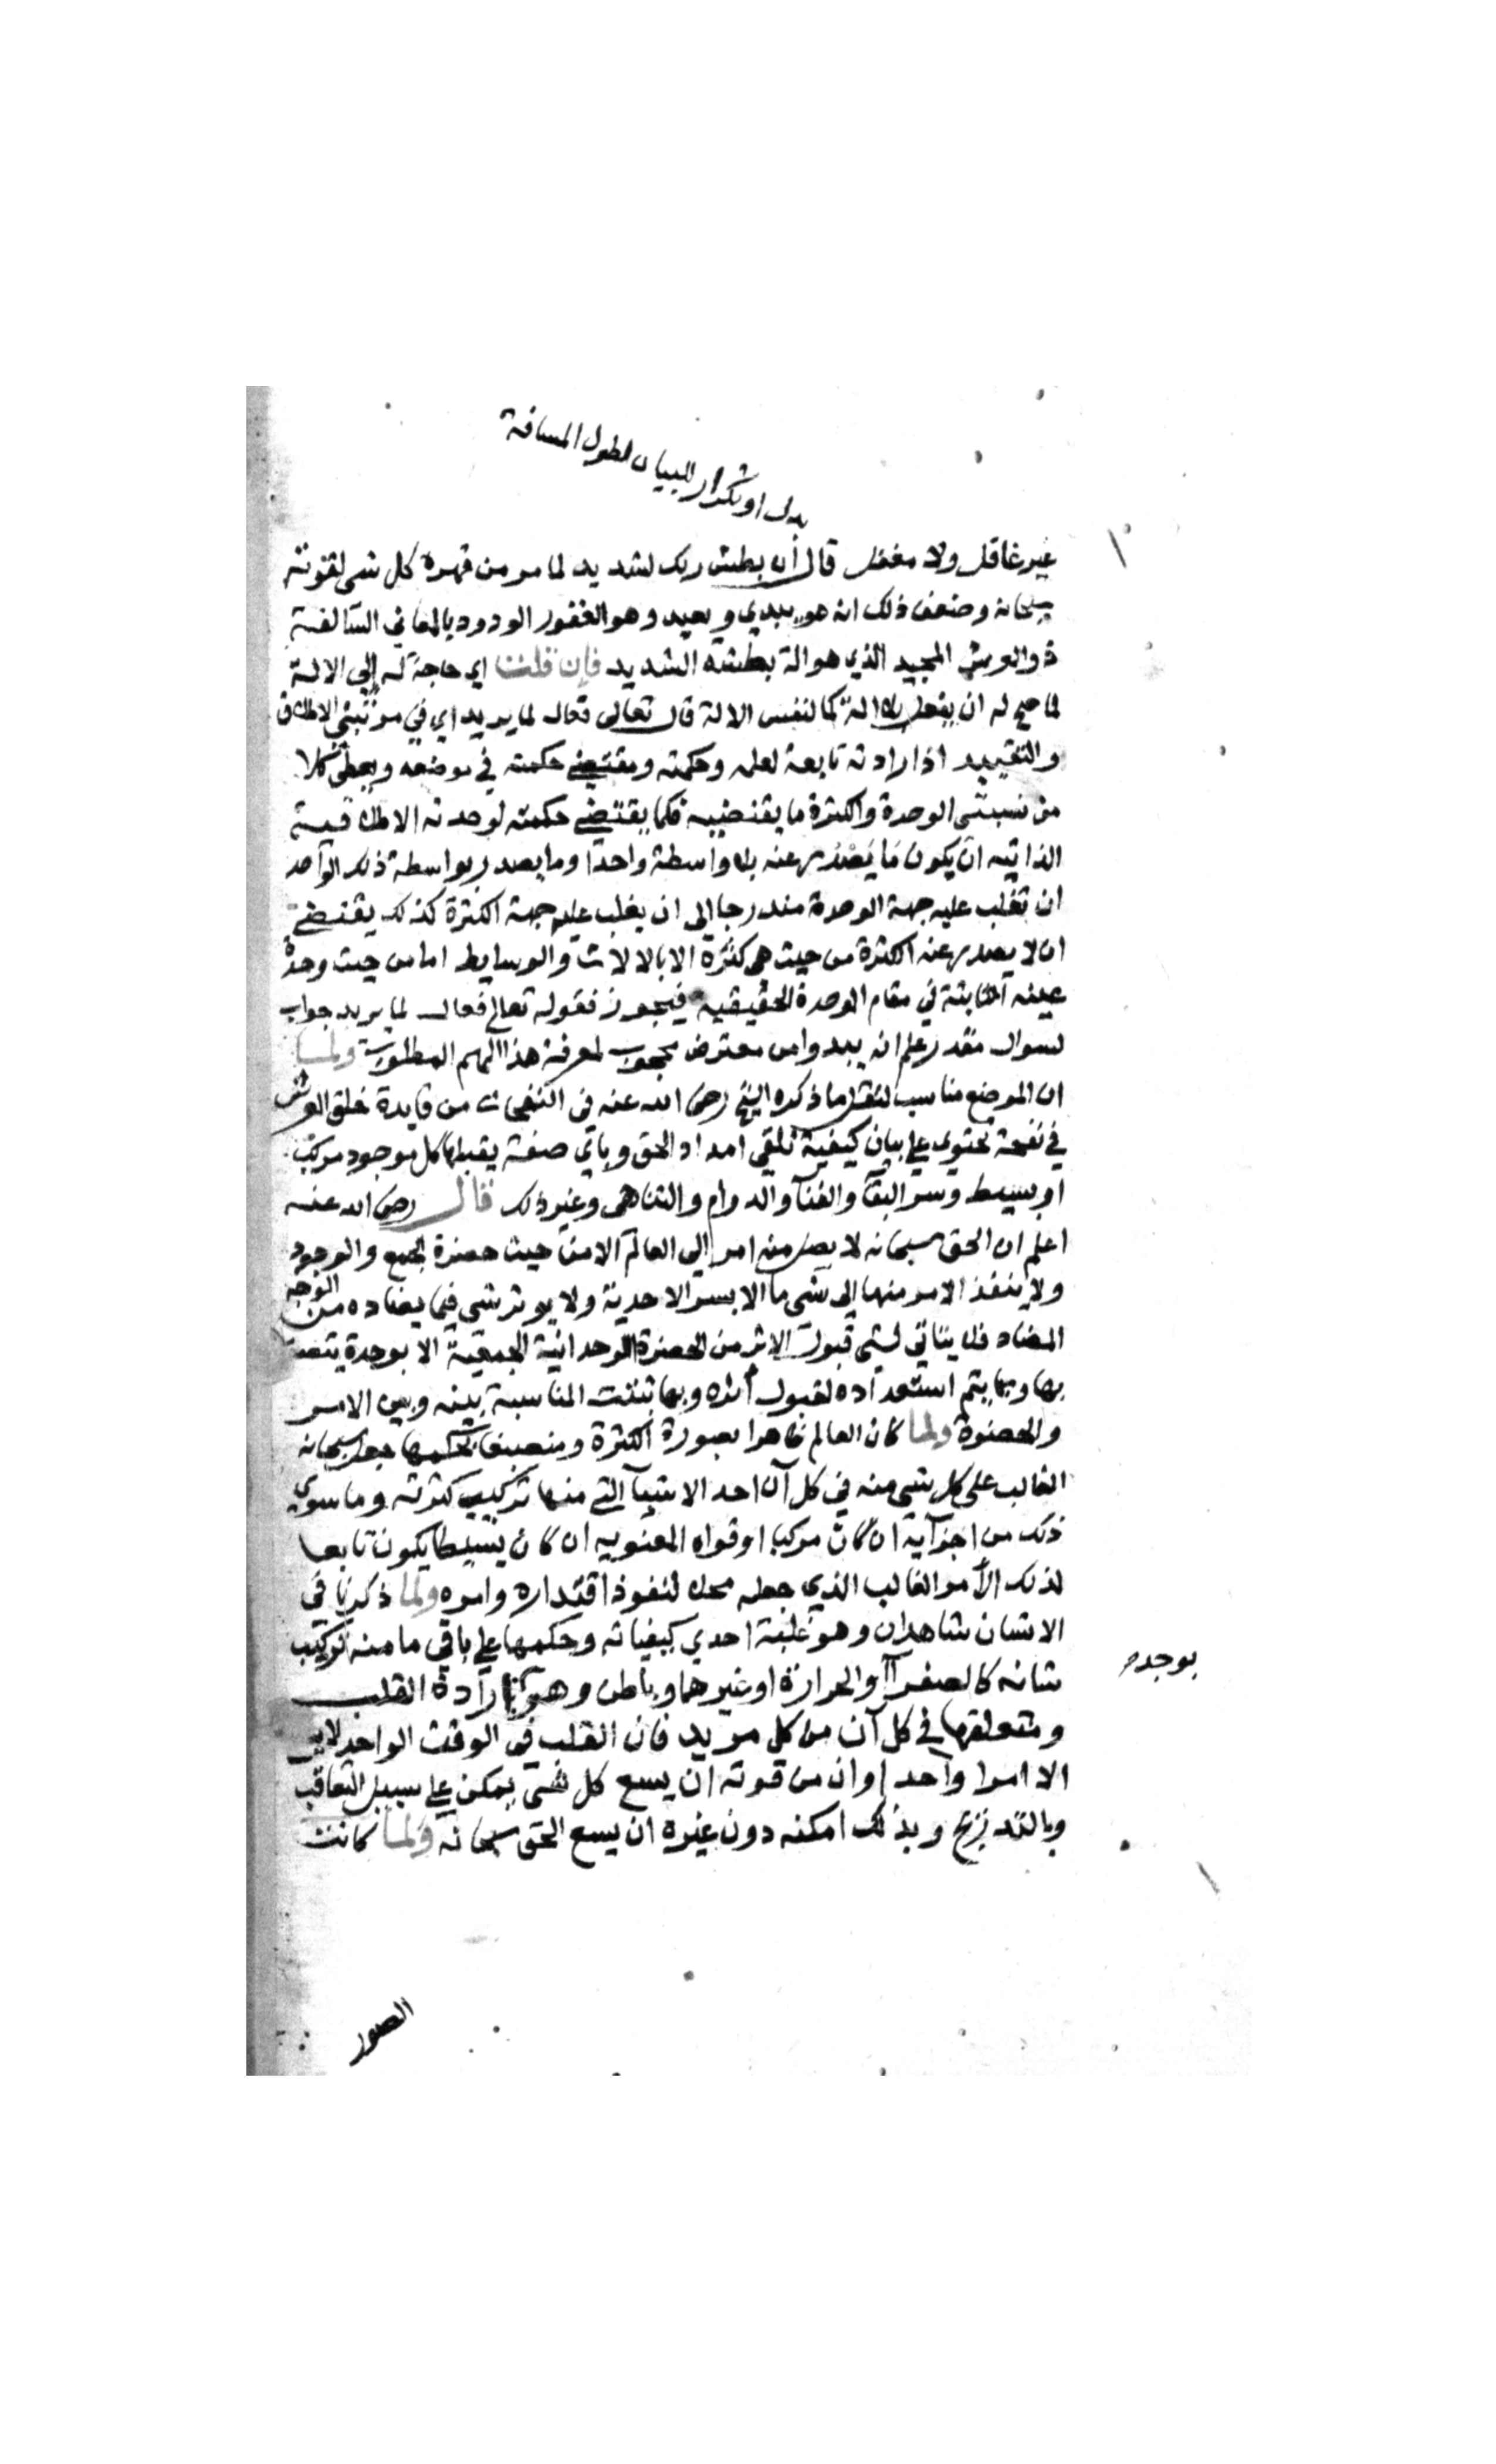 بدل او تكرار للبيان لطول المسافة
غير غافل ولا مغفل قال ان بطش ربك لشديد لما مر من قهره كل شى لقوته
سبحانه وضعف ذلك انه هو يبدي ويعيد وهو الغفور الودود بالمعاني السالفة
ذو العرش المجيد الذي هو الة بطشه الشديد فإن قلت اي حاجة له إلى الالة
لما صح له ان يفعل بلا الة كما لنفس الالة قال تعالى فعال لما يريد اي في مرتبتي الاطلاق
والتقييد اذ ارادته تابعة لعلمه وحكمته ومقتضى حكمته في موضعه ويعطي كلا
من نسبتى الوحدة والكثرة ما يقتضيه فكما يقتضي حكمته لوحدته الاطلاقية
الذاتيه ان يكون ما يصدر عنه بلا واسطة واحدا وما يصدر بواسطة ذلك الواحد
ان تغلب عليه جهة الوحدة مندرجا الى ان يغلب عليه جهة الكثرة كذلك يقتضي
ان لا يصدر عنه الكثرة من حيث هى كثرة الا بالالات والوسايط اما من حيث وحدة
عينه الثابتة في مقام الوحدة الحقيقيه فيجوز فقوله تعالى فعال لما يريد جواب
لسوال مقدر علم انه يبدو من معترض محجوب لمعرفة هذا المهم المطلوب ولما
ان الموضع مناسب لنقل ما ذكره الشيخ رضى الله عنه فى النفحات من فايدة خلق العرش
في نفحة تحتوي على بيان كيفية تلقي امداد الحق وباي صفة يقبلها كل موجود مركب
او بسيط وسر البقآ والفنآ والدوام والتناهى وغير ذلك قال رضى الله عنه
اعلم ان الحق سبحانه لا يصل منه امر إلى العالم الا من حيث حضرة الجمع والوجود
ولا ينفذ الامر منها الى شى ما الا بسر الاحدية ولا يوثر شى فيما يضاده من الوجه
المضاد فلا يتاتي لشى قبول الاثر من الحضرة الوحدانية الجمعية الا بوحدة يتصف
بها وبها يتم استعداده لقبول اثره وبها تثبت المناسبة بينه وبين الامر
والحضرة ولما كان العالم ظاهرا بصورة الكثرة ومنصبغا بحكمها جعل سبحانه
الغالب على كل شى منه في كل آن احد الاشيآ التي منها تركيب كثرته وما سوى
ذلك من اجزآيه ان كان مركبا او قواه المعنويه ان كان بسيطا يكون تابعا
لذلك الأمر الغالب الذي جعله محلا لنفوذ اقتداره وامره ولما ذكرنا في
الانسان شاهدان وهو غلبة احدي كيفياته وحكمها على باقي ما منه تركيب
شانه كالصفرآ والحرارة او غيرهما وباطن وهو ارادة القلب
بوجده
ومتعلقها في كل آن من كل مريد فان القلب فى الوقت الواحد لا يسع
الا امرا واحدا وان من قوته ان يسع كل شى يمكن على سبيل التعاقب
وبالتدريج وبذلك امكنه دون غيره ان يسع الحق سبحانه ولما كانت
الصور